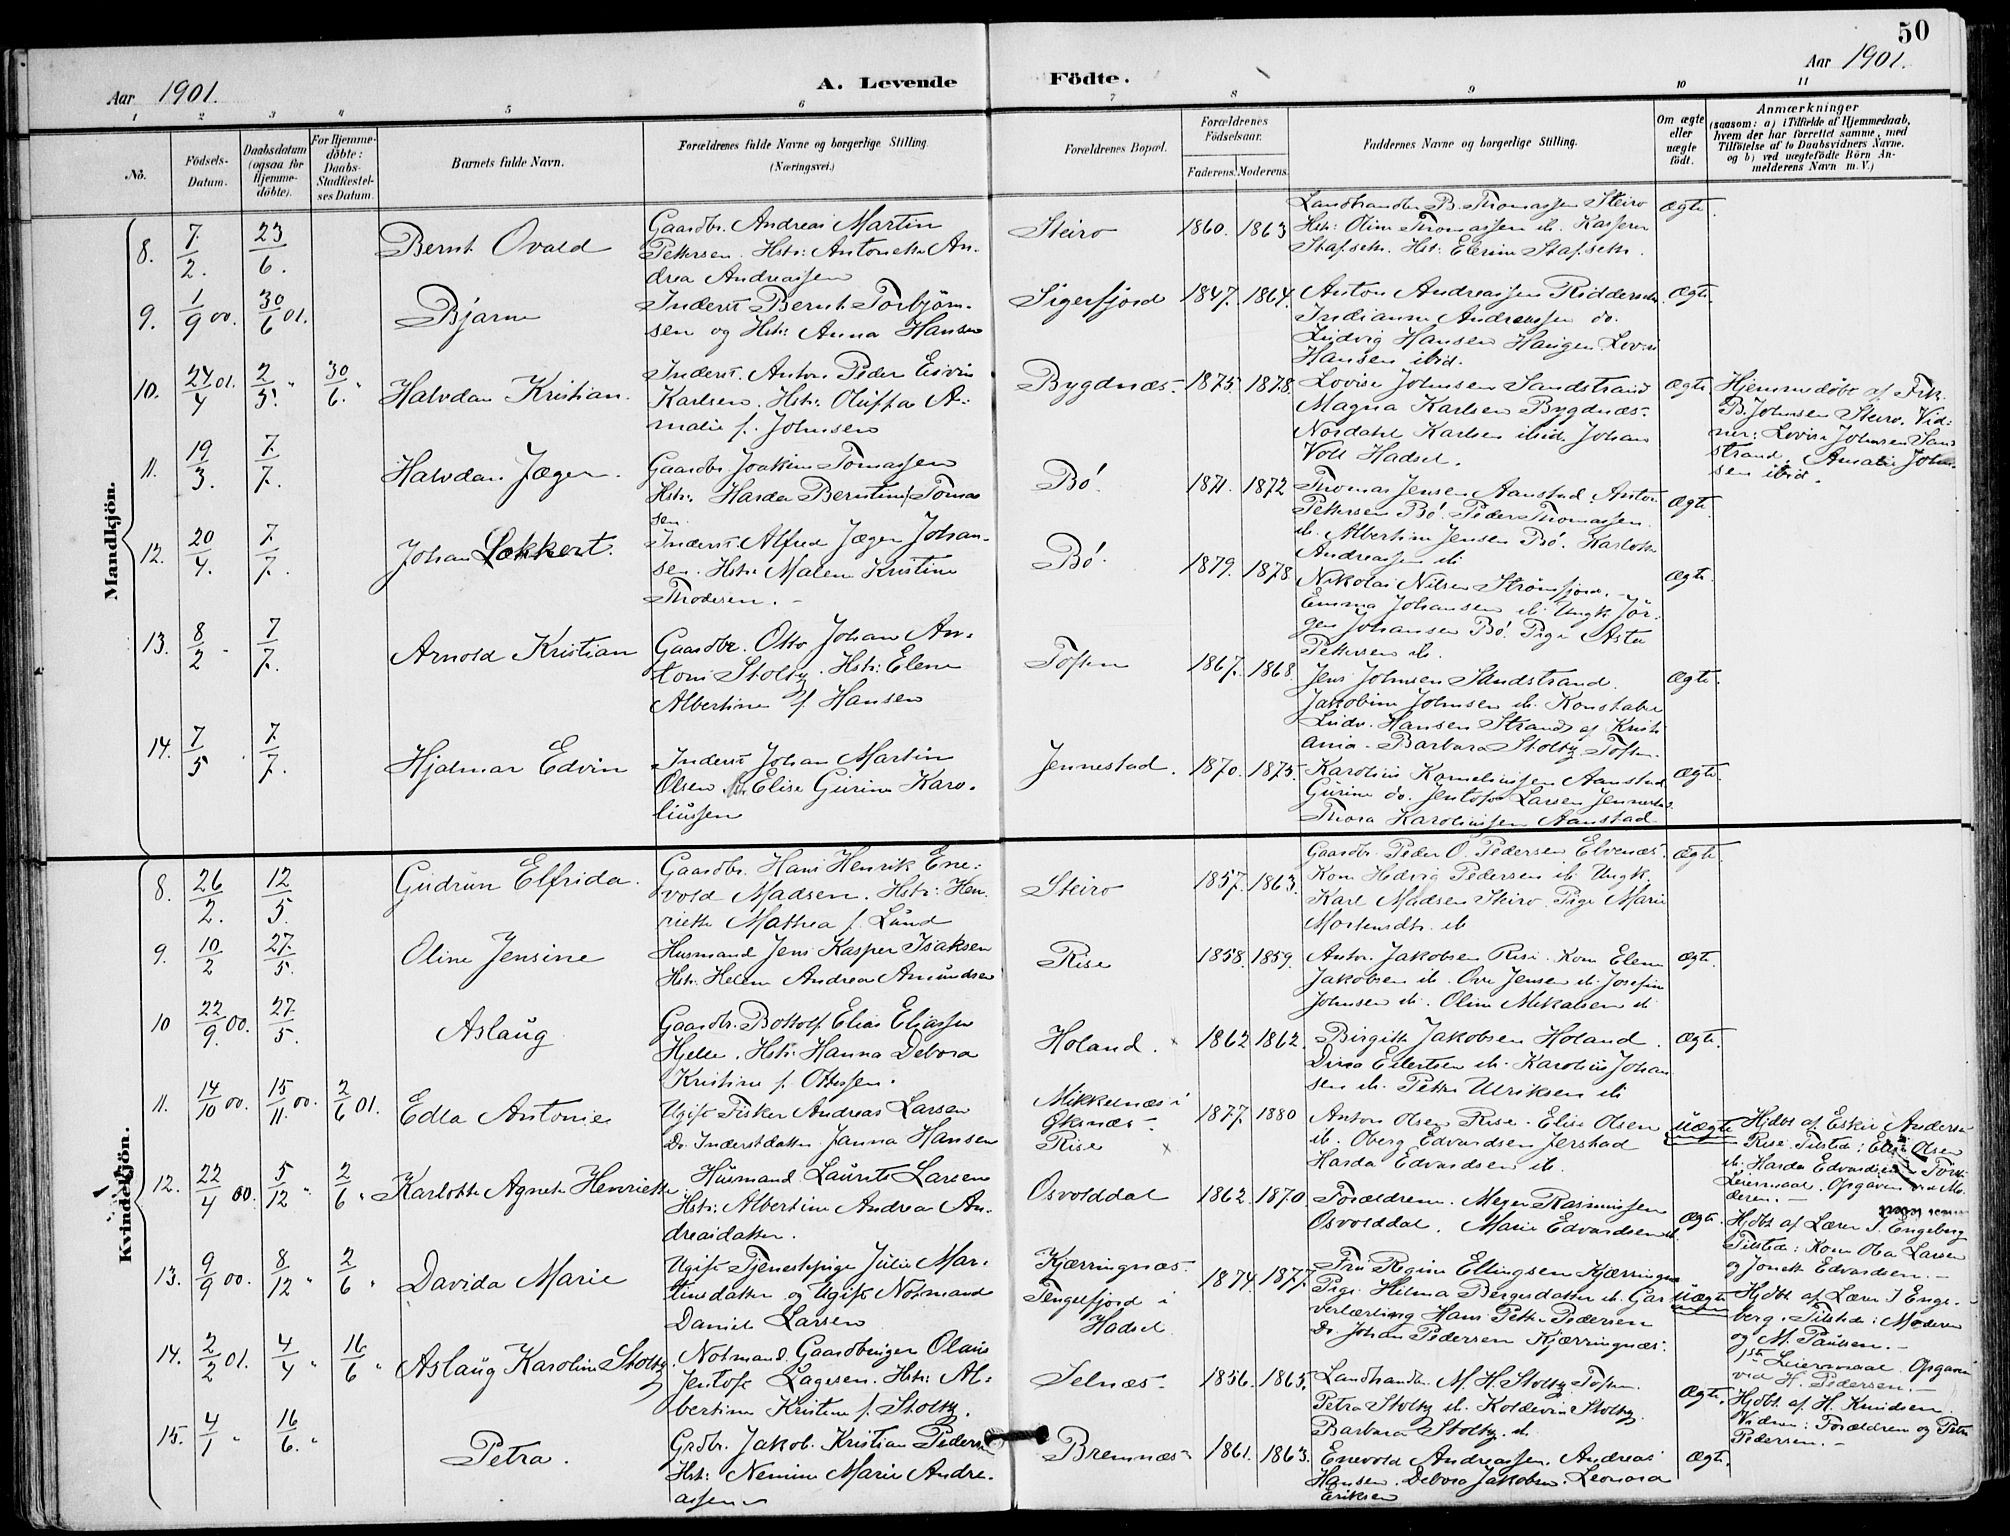 50
Aar 1901.
A. Levende Födte.
Aar 1901.
1 2 3 4 5 6 7 8 9 10 11
No.
Födsels-Datum.
Daabsdatum (ogsaa for Hjemmedöbte).
For Hjemmedöbte: Daabs-Stadfæstelses Datum.
Barnets fulde Navn.
Forældrenes fulde Navne og borgerlige Stilling.
(Næringsvei.)
Forældrenes Bopæl.
Forældrenes Födselsaar.
Faderens. Moderens.
Faddernes Navne og borgerlige Stilling.
Om ægte eller uægte födt.
Anmærkninger
(saasom: a) i Tilfælde af Hjemmedaab,
hvem der har forrettet samme, med
Tilföielse af to Daabsvidners Navne,
og b) ved uægtefödte Börn Anmelderens Navn m. V.)
Mandkjön.
8. 7/2. 23/6. Bernt Ovald
Gaardbr. Andreas Martin
Pettersen. Hstr: Antonette An-
drea Andreassen
Steiro 1860. 1863
Landhandler B. Thomassen Steiro
Hstr: Oline Thomassen ib. Kasserer
Stafseth. Hst: Elerine Stafseth.
Ægte.
9. 1/9 00. 30/6 01. Bjarne
Inderst Bernt Torbjörn-
sen og Hstr: Anna Hansen
Sigerfjord 1847. 1864.
Anton Andreassen Riddersth.
Indianne Andreassen do.
Ludvig Hansen Haugen. Lovise
Hansen ibid.
Ægte.
10. 24/4 01. 2/5. " 30/6. " Halvdan Kristian.
Inderst. Anton Peder Eivin
Karlsen. Hstr: Oluffa A-
malie f. Johnsen
Bygdnæs- 1875. 1878.
Lovise Johnsen Sandstrand
Magna Karlsen Bygdnæs-
Nordahl Karlsen ibid. Johan
Voll Hadsel.
Ægte
Hjemmedöbt af Frk.
B. Johnsen Steiro. Vid-
ner: Lovise Johnsen Sand
strand. Amalie John-
sen ibid.
11. 19/3. 7/7. Halvdan Jæger.
Gaardbr. Joakim Tomassen
Hstr: Harda Berntine Tomas
sen.
Bö. 1871. 1872
Thomas Jensen Aanstad. Anton
Pettersen Bö. Peder Thomassen
ib. Albertine Jensen Bö. Karlotte
Andreassen ib
Ægte.
12. 20/4. 7/7. Johan Lökkert.
Inderst. Alfred Jæger Johan-
sen. Hstr: Malene Kristine
Thodesen. -
Bö. 1879. 1878.
Nikolai Nilsen Strömfjord.
Emma Johansen ib. Ungk. Jör-
gen Johansen Bö. Pige Asta
Pettersen ib.
Ægte.
13. 8/2 - 7/7. Arnold Kristian
Gaardbr. Otto Johan An-
toni Stoltz. Hstr: Elene
Albertine f. Hansen
Toften 1867. 1868.
Jens Johnsen Sandstrand.
Jakobine Johnsen ib. Konstabel
Ludv. Hansen Strand af Kristi
ania. Barbara Stoltz Toften
Ægte.
14. 7/5. 7/7. Hjalmar Edvin
Inderst Johan Martin
Olsen Elise Gurine Karo-
liussen
Jennestad. 1870. 1875.
Karolius Korneliussen Aanstad
Gurine do. Jentoft Larsen Jennestad.
Thora Karoliussen Aanstad
Ægte.
Kvindekjön.
8. 26/2. 12/5. Gudrun Elfrida.
Gaardbr. Hans Henrik Ene-
vold Madsen. Hstr: Hen-
riette Mathea f. Lund
Steiro 1857. 1863.
Gaardbr. Peder O. Pedersen Elvenæs.
Kone Hedvig Pedersen ib. Ungk.
Karl Madsen Steiro. Pige Marie
Mortensdtr. ib
Ægte.
9. 10/2 27/5. Oline Jensine
Husmand Jens Kasper Isaksen
Hstr. Helene Andrea Amundsen
Rise 1858. 1859.
Anton Jakobsen Rise. Kone Elene
Jakobsen ib. Ove Jensen ib. Josefine
Johnsen ib. Oline Mikalsen ib
Ægte.
10 22/9. 00. 27/5. Aslaug
Gaardbr. Bottolf Elias Eliassen
Hjelle. Hstr: Hanna Debora
Kristine f. Ottesen.
Holand. 1862 1862.
Birgitte Jakobsen Holand.
Dina Eilertsen ib. Karolius Johan
sen ib. Petra Ulriksen ib
Ægte.
11. 14/10 00. 15/11. 00. 2/6 01. Edla Antonie
Ugift Fisker Andreas Larsen
Do. Inderstdatter Janna Hansen
Mikkelnæs i
Öksnæs-
Rise
1877. 1880
Anton Olsen Rise. Elise Olsen
ib. Oberg Edvardsen Jerstad
Harda Edvardsen ib.
Uægte
Hjdbt af Eskil Anderse
Rise. Tilsted: Elise Olsen
ib. Harda Edvardsen. Förste
Leiermaal. Opgaven ved Mo-
deren. -
12. 22/4 00. 5/12 " 2/6 " Karlotte Agnete Henriette
Husmand Laurits Larsen
Hstr: Albertine Andrea An-
dreasdatter.
Osvolddal 1862. 1870.
Forældrene. Meyer Rasmussen
Osvolddal. Marie Edvardsen ib.
Ægte.
Hjdbt af Lærer I. Engeberg
Tilsted: Kone Oba Larsen
og Jonetta Edvardsen. -
13. 9/9 00. 8/12 " 2/6 " Davida Marie
Ugift Tjenestepige Julie Mar-
tinsdatter og Ugift Notmand
Daniel Larsen
Kjærringnæs-
Tengelfjord i
Hadsel
1874. 1877.
Fru Regine Ellingsen Kjærringnæs
Pige Hilma Bergesdatter ib. Gar
verlærling Hans Petter Pedersen
Do. Johan Pedersen Kjærringnæs.
Uægte
Hjdbt af Lærer I Enge-
berg. Tilstede: Moderen
og M. Paulsen. -
1ste Leiermaal. Opgaven
ved H. Pedersen. -
14. 2/2 01. 4/4 " 16/6 " Aslaug Karoline Stoltz.
Notmand. Gaardbruger Olaus
Jentoft Lagesen. Hstr: Al-
bertine Kristine f. Stoltz.
Selnæs- 1856. 1865.
Landhandler M. H. Stoltz Toften.
Petra Stoltz ib. Koldevin Stoltz.
Barbara Stoltz. ib.
Ægte.
Hjdbt. af H. Knudsen.
Vidner: Forældren og Petra
Pedersen. -
15. 4/1 " 16/6. " Petra.
Grdbr. Jakob Kristian Pedersen
Hst: Nemine Marie Andre-
assen
Bremnæs- 1861. 1863.
Enevold Andreassen. Andreas
Hansen. Debora Jakobsen. Leonora
Eriksen
Ægte.